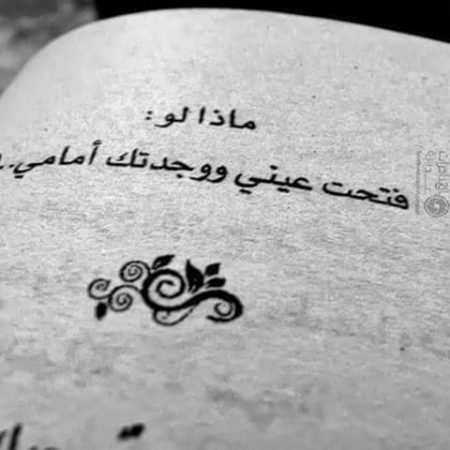 ماذا لو:
فتحت عيني ووجدتك أمامي..